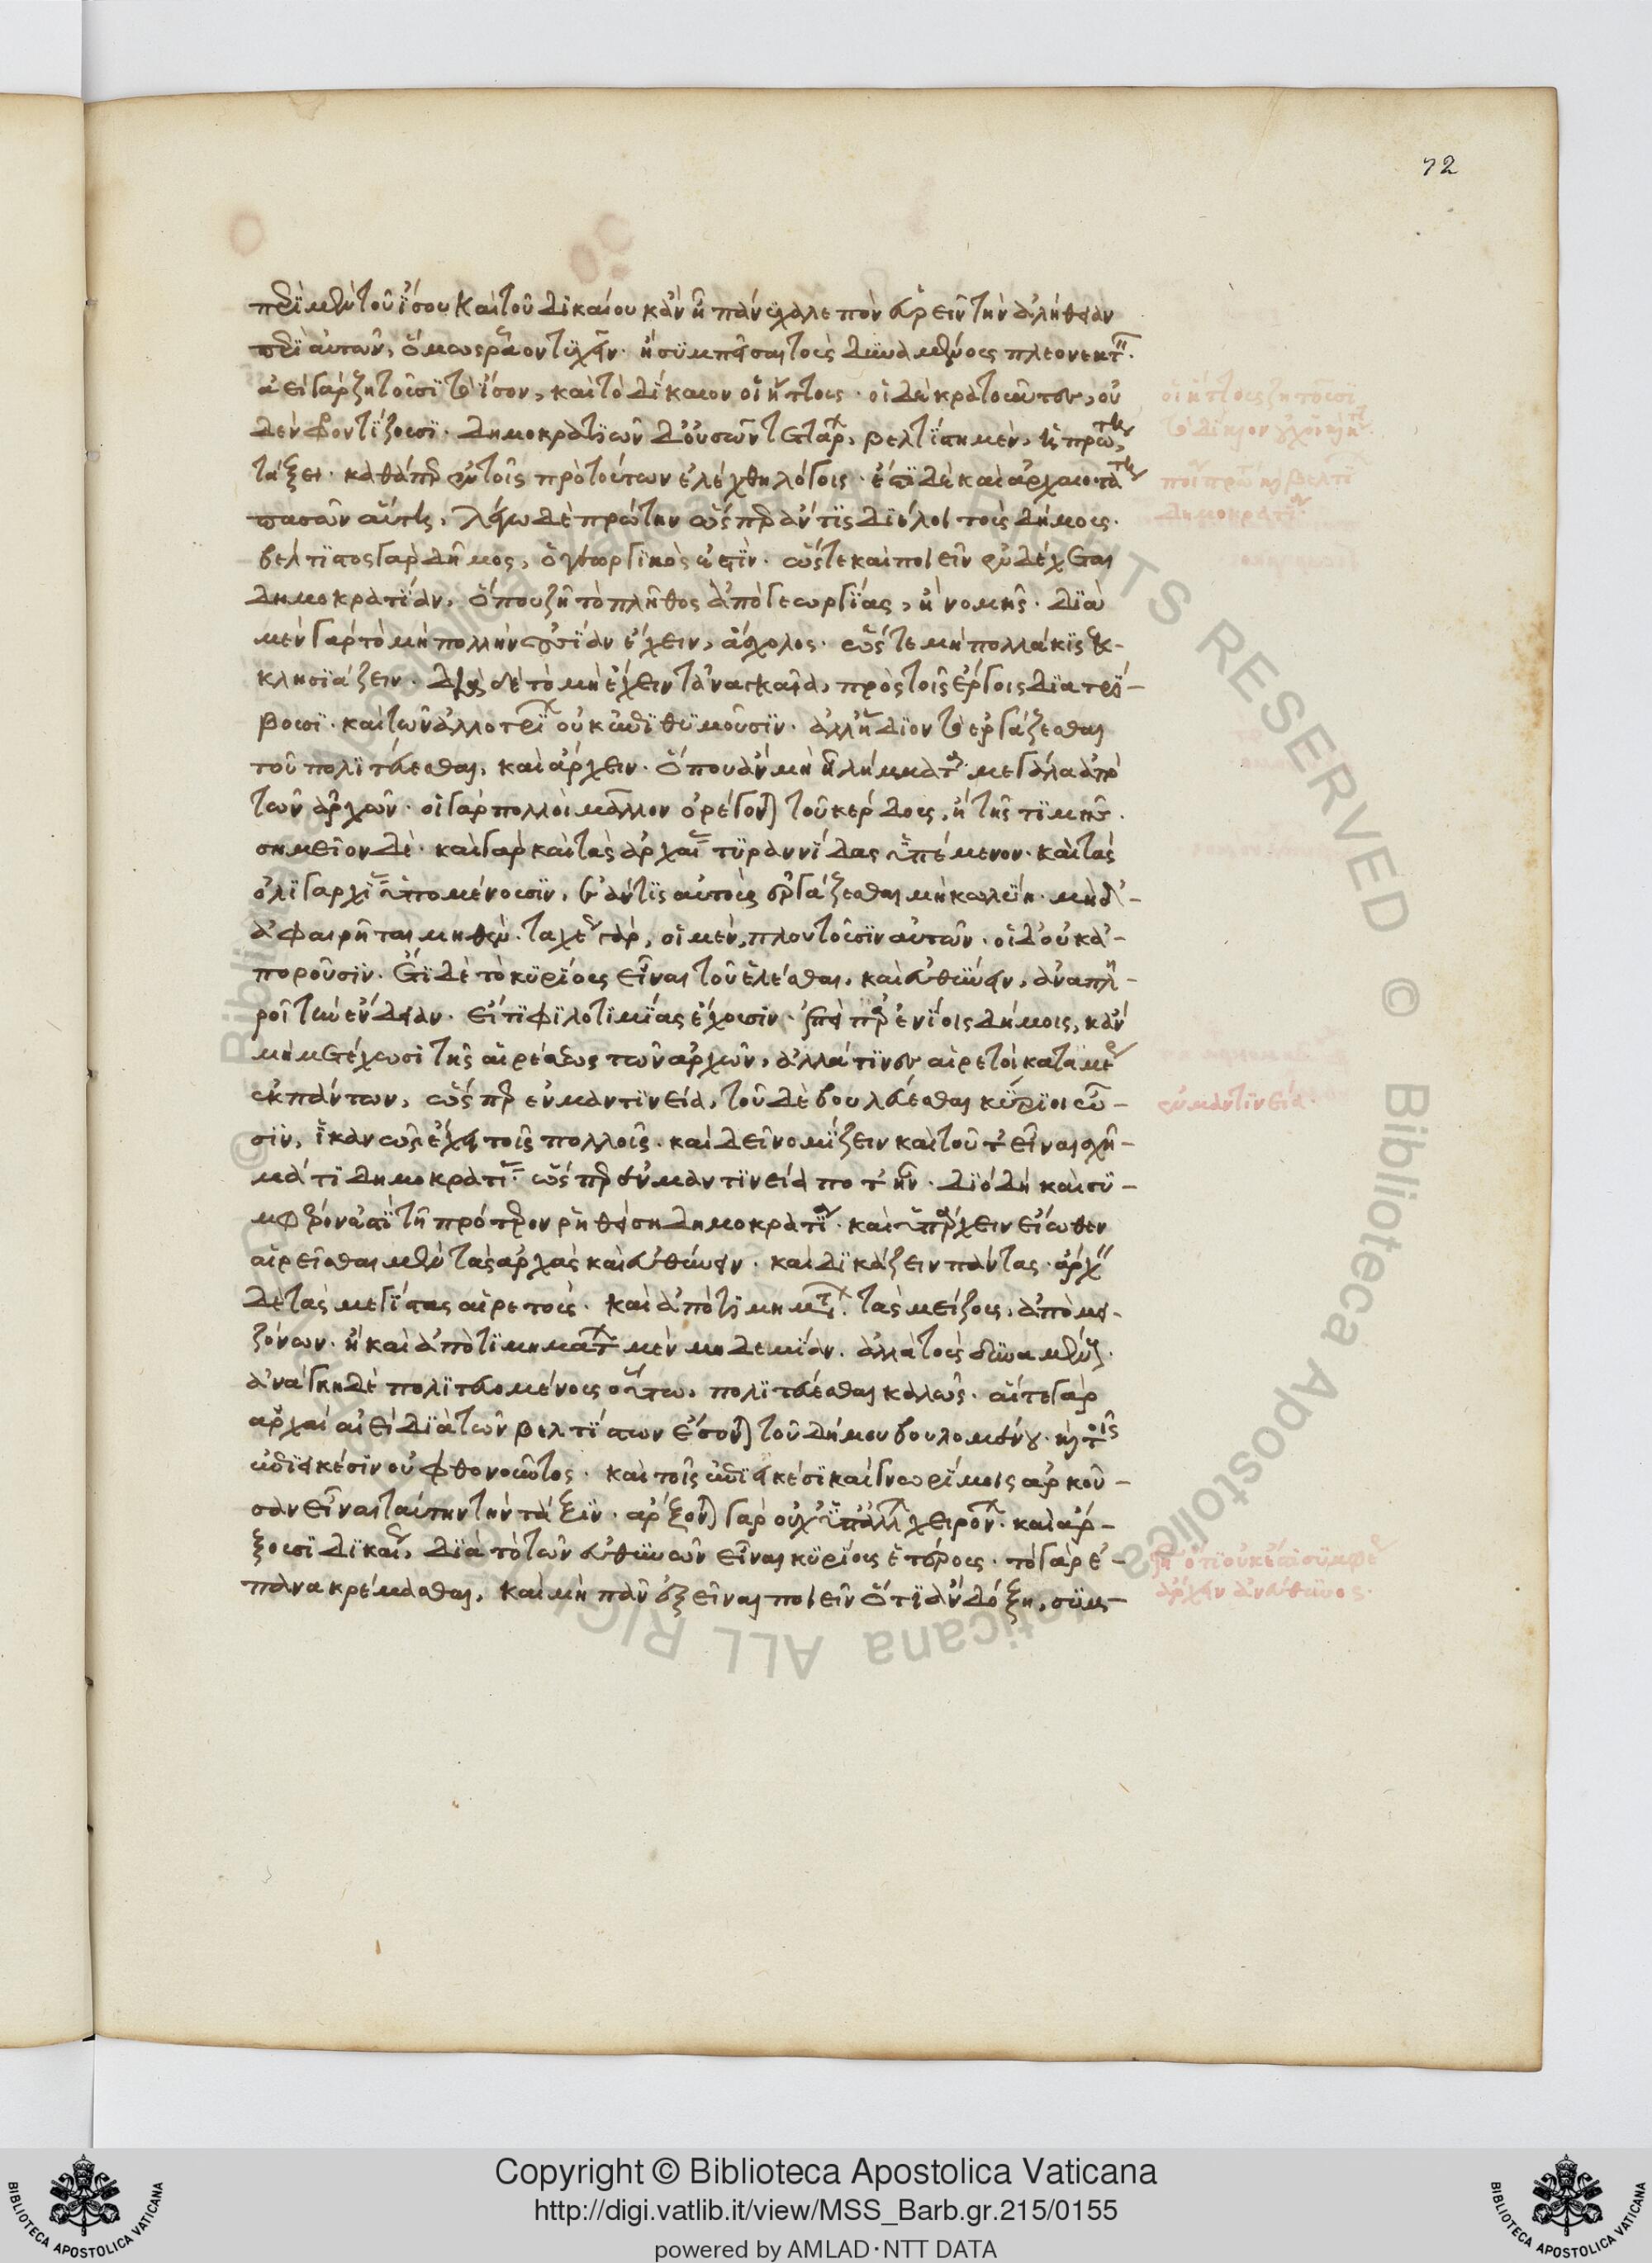 72
περὶ μὲν τοῦ ἴσου καὶ τοῦ δικαίου κἂν ᾖ πάνυ χαλεπὸν εὑρεῖν τὴν ἀλήθειαν
περὶ αὐτῶν, ὅμως ῥᾷον τυχεῖν· ἢ συμπεῖσαι τοὺς δυναμένους πλεονεκτεῖν·
ἀεὶ γὰρ ζητοῦσι τὸ ἴσον, καὶ τὸ δίκαιον οἱ ἥττους· οἱ δὲ κρατοῦντες, οὐ
δὲν φροντίζουσι· δημοκρατιῶν δ' οὐσῶν τεττάρων, βελτίστη μὲν, ἡ πρώτη
τάξει· καθάπερ ἐν τοῖς πρὸ τούτων ἐλέχθη λόγοις· ἔστι δὲ καὶ ἀρχαιοτάτη
πασῶν αὕτη, λέγω δὲ πρώτην ὥσπερ ἄν τις διέλοι τοὺς δήμους·
βέλτιστος γὰρ δῆμος, ὁ γεωργικός ἐστιν· ὥστε καὶ ποιεῖν ἐνδέχεται
δημοκρατίαν, ὅπου ζῇ τὸ πλῆθος ἀπὸ γεωργίας, ἢ νομῆς· διὰ
μὲν γὰρ τὸ μὴ πολλὴν οὐσίαν ἔχειν, ἄσχολος· ὥστε μὴ πολλάκις ἐκ-
κλησιάζειν· διὰ δὲ τὸ μὴ ἔχειν τἀναγκαῖα, πρὸς τοῖς ἔργοις διατρί-
βουσι· καὶ τῶν ἀλλοτρίων οὐκ ἐπιθυμοῦσιν· ἀλλ' ἥδιον τὸ ἐργάζεσθαι
τοῦ πολιτεύεσθαι, καὶ ἄρχειν· ὅπου ἂν μὴ ᾖ λήμματα μεγάλα ἀπὸ
τῶν ἀρχῶν· οἱ γὰρ πολλοὶ μᾶλλον ὀρέγονται τοῦ κέρδους, ἢ τῆς τιμῆς·
σημεῖον δέ· καὶ γὰρ καὶ τὰς ἀρχαίας τυραννίδας ὑπέμενον· καὶ τὰς
ὀλιγαρχίας ὑπομένουσιν, ἐάν τις αὐτοὺς ἐργάζεσθαι μὴ κωλύῃ· μηδ'-
ἀφαιρῆται μηθέν· ταχέως γὰρ, οἱ μὲν, πλουτοῦσιν αὐτῶν· οἱ δ' οὐκ ἀ-
ποροῦσιν· ἔτι δὲ τὸ κυρίους εἶναι τοῦ ἑλέσθαι, καὶ εὐθύνειν, ἀναπλη-
ροῖ τὴν ἔνδειαν· εἴ τι φιλοτιμίας ἔχουσιν· ἐπεὶ παρ' ἐνίοις δήμοις, κἂν
μὴ μετέχωσι τῆς αἱρέσεως τῶν ἀρχῶν, ἀλλά τινες αἱρετοὶ κατὰ μέρος
ἐκ πάντων, ὥσπερ ἐν μαντινείᾳ, τοῦ δὲ βουλεύεσθαι κύριοι ὦ-
σιν, ἱκανῶς ἔχει τοῖς πολλοῖς· καὶ δεῖ νομίζειν καὶ τοῦτ' εἶναι σχῆ-
μά τι δημοκρατίας· ὥσπερ ἐν μαντινείᾳ ποτ' ἦν· διὸ δὴ καὶ συ-
μφέρον ἐστὶ τῇ πρότερον ῥηθείσῃ δημοκρατίᾳ· καὶ ὑπάρχειν εἴωθεν
αἱρεῖσθαι μὲν τὰς ἀρχὰς καὶ εὐθύνειν· καὶ δικάζειν πάντας· ἄρχειν
δὲ τὰς μεγίστας αἱρετούς· καὶ ἀπὸ τιμημάτων· τὰς μείζους, ἀπὸ μει-
ζόνων· ἢ καὶ ἀπὸ τιμημάτων μὲν μηδεμίαν· ἀλλὰ τοὺς δυναμένους·
ἀνάγκη δὲ πολιτευομένους οὕτω, πολιτεύεσθαι καλῶς· αἵ τε γὰρ
ἀρχαὶ αἰεὶ διὰ τῶν βελτίστων ἔσονται τοῦ δήμου βουλομένου· καὶ τοῖς
ἐπιεικέσιν οὐ φθονοῦντος· καὶ τοῖς ἐπιεικέσι καὶ γνωρίμοις ἀρκοῦ-
σαν εἶναι ταύτην τὴν τάξιν· ἄρξονται γὰρ οὐχ ὑπ' ἄλλων χειρόνων· καὶ ἄρ-
ξουσι δικαίως, διὰ τὸ τῶν εὐθυνῶν εἶναι κυρίους ἑτέρους· τὸ γὰρ ἐ-
πανακρέμασθαι, καὶ μὴ πᾶν ἐξεῖναι ποιεῖν ὅτι ἂν δόξῃ, συμ-
οἱ ἥττους ζητοῦσι
τὸ δίκαιον
δημοκρατία
ἐν μαντινείᾳ·
ὅτι οὐκ ἔστι συμφέρον
ἄρχειν ἀνευθύνους·
Copyright © Biblioteca Apostolica Vaticana
http://digi.vatlib.it/view/MSS_Barb.gr.215/0155
powered by AMLAD·NTT DATA
© Biblioteca Apostolica Vaticana ALL RIGHTS RESERVED
BIBLIOTECA APOSTOLICA VATICANA
BIBLIOTECA APOSTOLICA VATICANA